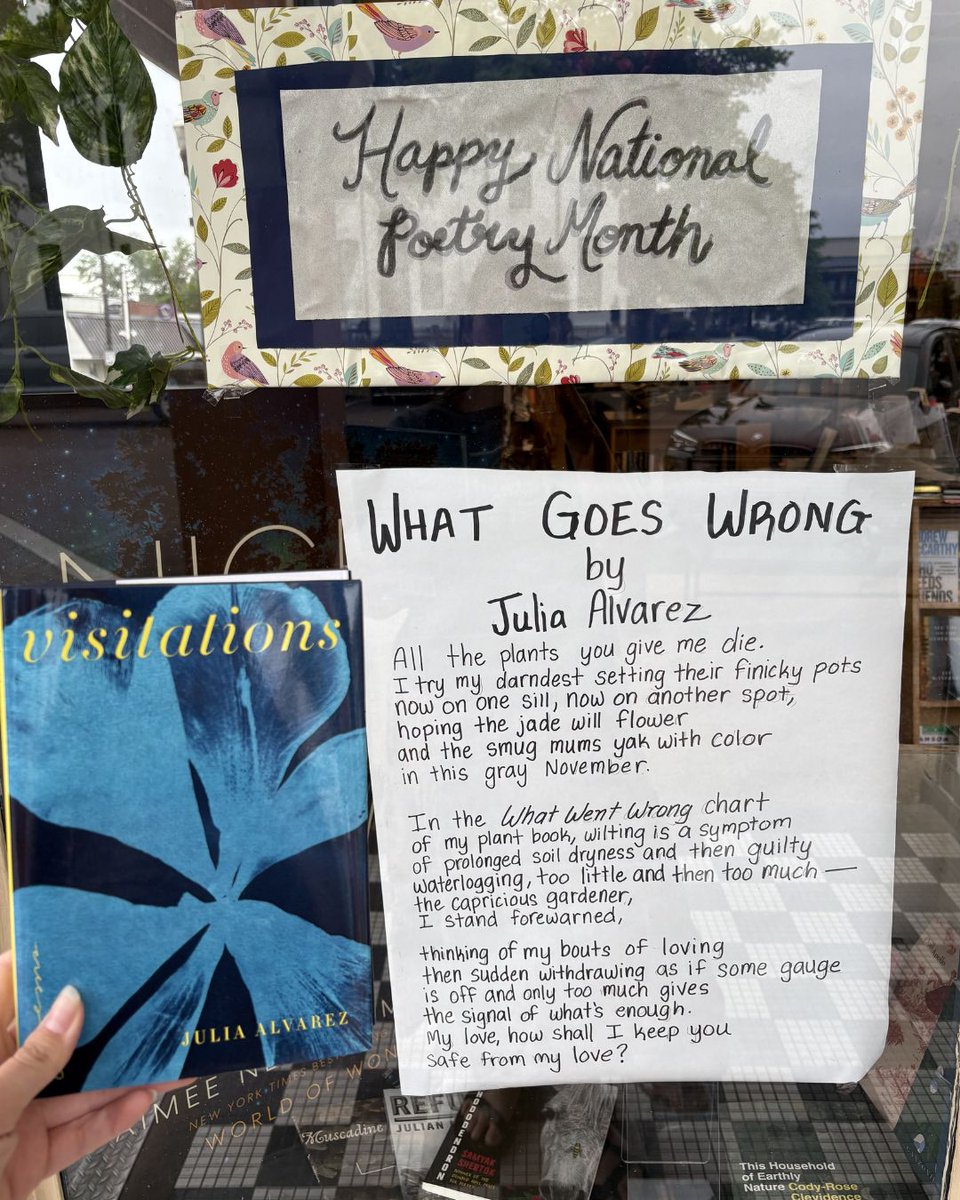 Happy National
Poetry Month
WHAT GOES WRONG
by
Julia Alvarez
All the plants you give me die.
I try my darndest setting their finicky pots
now on one sill, now on another spot,
hoping the jade will flower
and the smug mums yak with color
in this gray November.
In the What Went Wrong chart
of my plant book, wilting is a symptom
of prolonged soil dryness and then guilty
waterlogging, too little and then too much—
the capricious gardener,
I stand forewarned,
thinking of my bouts of loving
then sudden withdrawing as if some gauge
is off and only too much gives
the signal of what's enough.
My love, how shall I keep you
safe from my love?
visitations
poems
JULIA ALVAREZ
AIMEE NE
NEW YORK TIMES BEST
WORLD OF WON
Muscadine
REFU
JULIAN
RHODODENDRON
SAMYAK
SHERTOK
This Household
of Earthly
Nature Cody-Rose
Clevidence